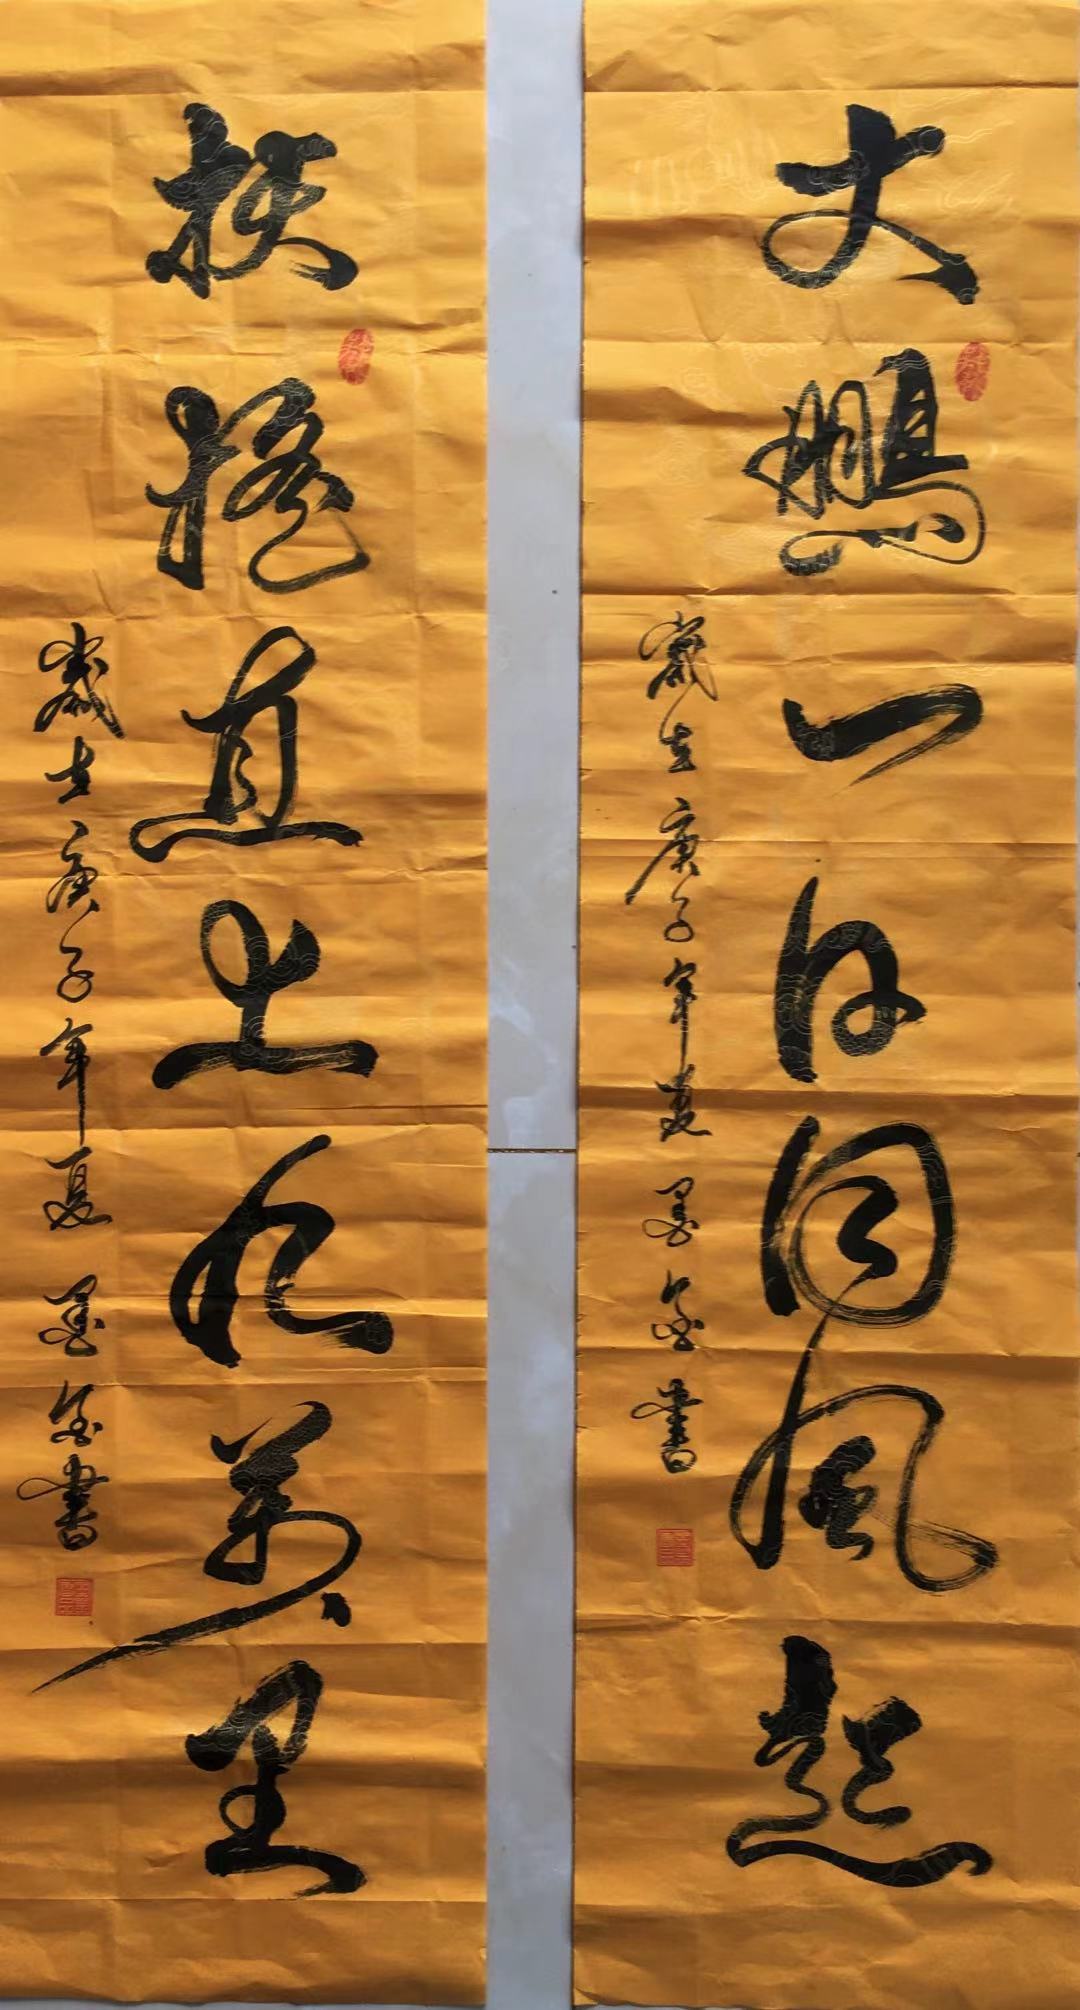 大鹏一日同风起
岁在庚子年夏 墨金书
扶摇直上九万里
岁在庚子年夏 墨金书